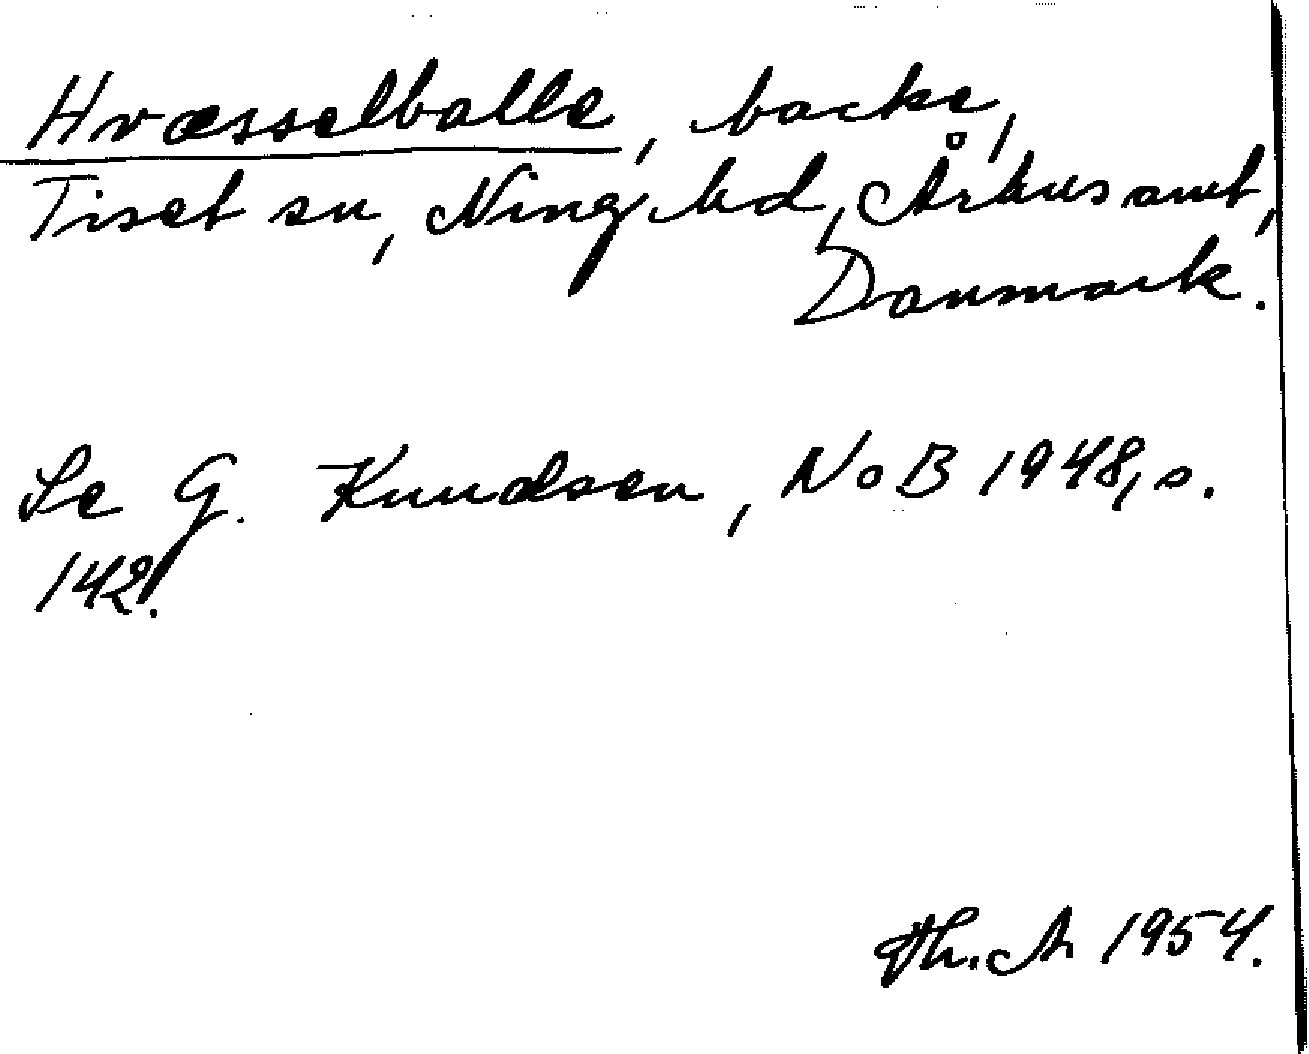 Hvæsselballe, backe,
Tiset sn, Ning hd, Århus amt,
Danmark.
Se G. Knudsen, NoB 1948, s.
142.
Th. A 1954.